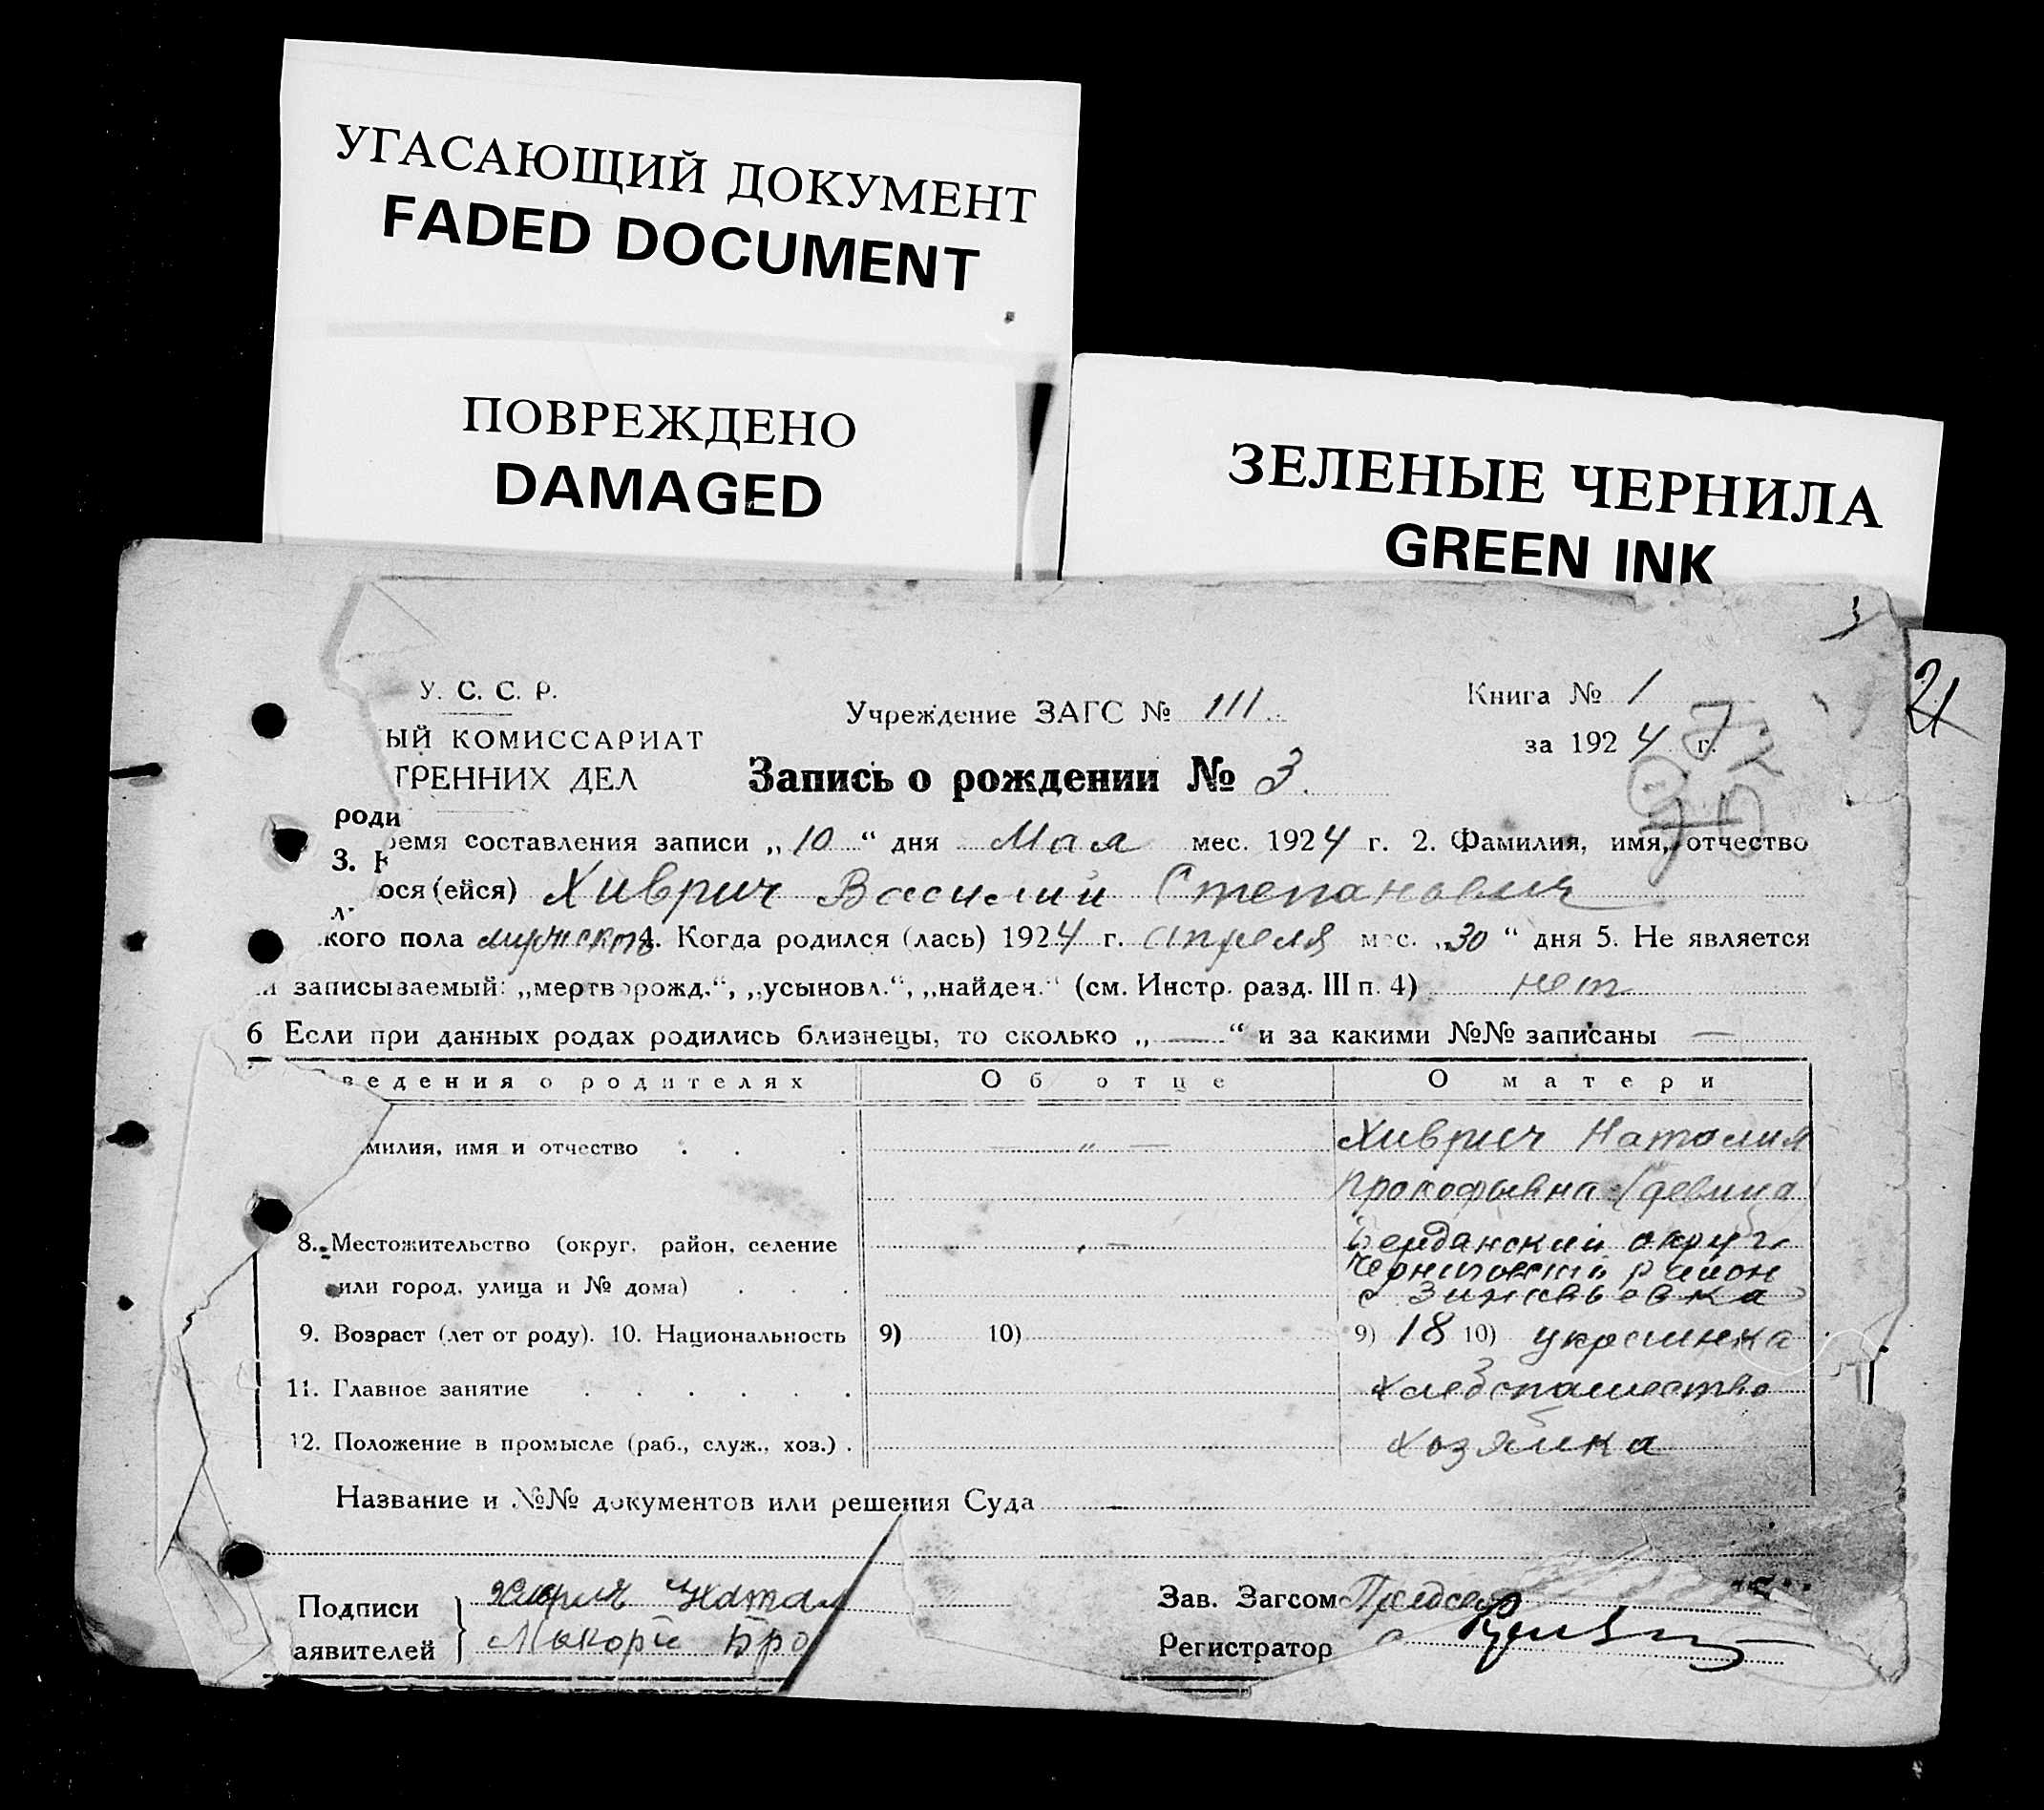 УГАСАЮЩИЙ ДОКУМЕНТ
FADED DOCUMENT
ПОВРЕЖДЕНО
DAMAGED
ЗЕЛЕНЫЕ ЧЕРНИЛА
GREEN INK
3
21
У. С. С. Р.
ЫЙ КОМИССАРИАТ
ТРЕННИХ ДЕЛ
Учреждение ЗАГС № 111
Книга № 1
за 1924 г.
Запись о рождении № 3.
роди
ремя составления записи „10“ дня Мая мес. 1924 г. 2. Фамилия, имя, отчество
3.
юся (ейся) Хиврич Василий Степанович
кого пола мужского 4. Когда родился (лась) 1924 г. Апреля мес. „30“ дня 5. Не является
и записываемый: „мертворожд.“, „усыновл.“, „найден.“ (см. Инстр. разд. III п. 4) нет
6 Если при данных родах родились близнецы, то сколько „—“ и за какими №№ записаны —
ведения о родителях Об отце О матери
милия, имя и отчество . . . — „ — Хиврич Наталия
Прокофьевна (девица
8. Местожительство (округ, район, селение — Бердянский округ
или город, улица и № дома) . . . Черниговский район
с Зиновьевка
9. Возраст (лет от роду). 10. Национальность 9) 10) 9) 18 10) украинка
11. Главное занятие . . . . . . Хлебопашество
12. Положение в промысле (раб., служ., хоз.) . Хозяйка
Название и №№ документов или решения Суда —
Подписи Хиврич Натал
аявителей Макорй Бро
Зав. Загсом Председ
Регистратор